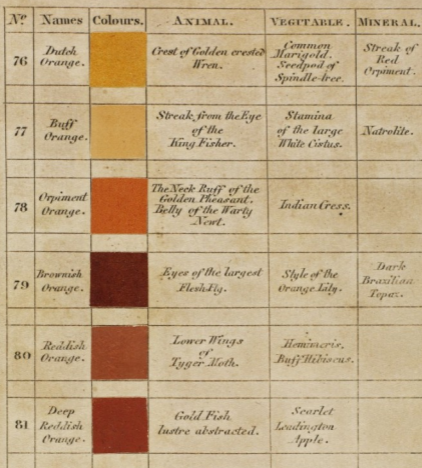 No. Names Colours. ANIMAL. VEGITABLE. MINERAL.
76
Dutch
Orange.
Crest of Golden crested
Wren.
Common
Marigold.
Seedpod of
Spindle-tree.
Streak of
Red
Orpiment.
77
Buff
Orange.
Streak from the Eye
of the
King Fisher.
Stamina
of the large
White Cistus.
Natrolite.
78
Orpiment
Orange.
The Neck Ruff of the
Golden Pheasant.
Belly of the Warty
Newt.
Indian Cress.
79
Brownish
Orange.
Eyes of the largest
Flesh Fly.
Style of the
Orange Lily.
Dark
Brazilian
Topaz.
80
Reddish
Orange.
Lower Wings
of
Tyger Moth.
Hemimeris.
Buff Hibiscus.
81
Deep
Reddish
Orange.
Gold Fish
lustre abstracted.
Scarlet
Leadington
Apple.